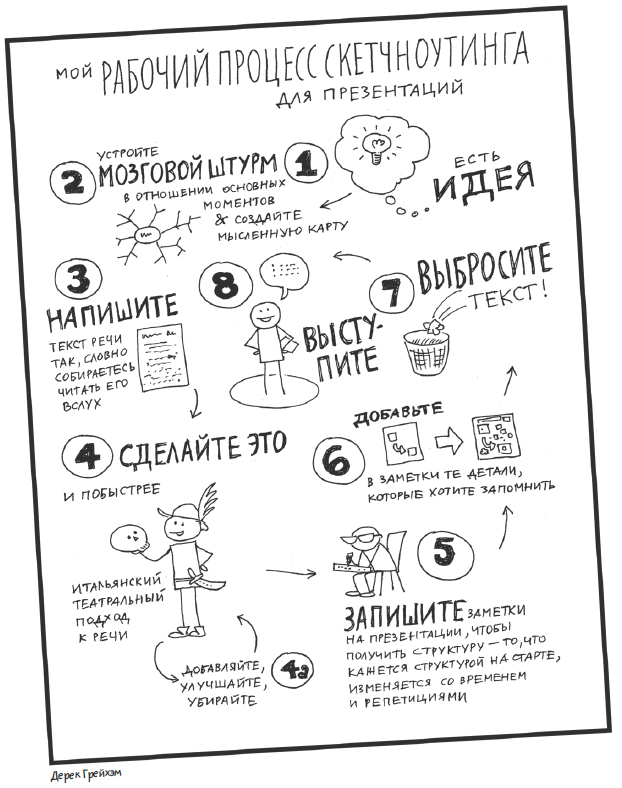 мой РАБОЧИЙ ПРОЦЕСС СКЕТЧНОУТИНГА
ДЛЯ ПРЕЗЕНТАЦИЙ
1
ЕСТЬ
ИДЕЯ
2
УСТРОЙТЕ
МОЗГОВОЙ ШТУРМ
В ОТНОШЕНИИ ОСНОВНЫХ
МОМЕНТОВ
& СОЗДАЙТЕ
МЫСЛЕННУЮ КАРТУ
3
НАПИШИТЕ
ТЕКСТ РЕЧИ
ТАК, СЛОВНО
СОБИРАЕТЕСЬ
ЧИТАТЬ ЕГО
ВСЛУХ
4 СДЕЛАЙТЕ ЭТО
И ПОБЫСТРЕЕ
ИТАЛЬЯНСКИЙ
ТЕАТРАЛЬНЫЙ
ПОДХОД
К РЕЧИ
4a
ДОБАВЛЯЙТЕ,
УЛУЧШАЙТЕ,
УБИРАЙТЕ
5
ЗАПИШИТЕ ЗАМЕТКИ
НА ПРЕЗЕНТАЦИИ, ЧТОБЫ
ПОЛУЧИТЬ СТРУКТУРУ — ТО, ЧТО
КАЖЕТСЯ СТРУКТУРОЙ НА СТАРТЕ,
ИЗМЕНЯЕТСЯ СО ВРЕМЕНЕМ
И РЕПЕТИЦИЯМИ
6
ДОБАВЬТЕ
В ЗАМЕТКИ ТЕ ДЕТАЛИ,
КОТОРЫЕ ХОТИТЕ ЗАПОМНИТЬ
7
ВЫБРОСИТЕ
ТЕКСТ!
8
ВЫСТУ-
ПИТЕ
Дерек Грейхэм